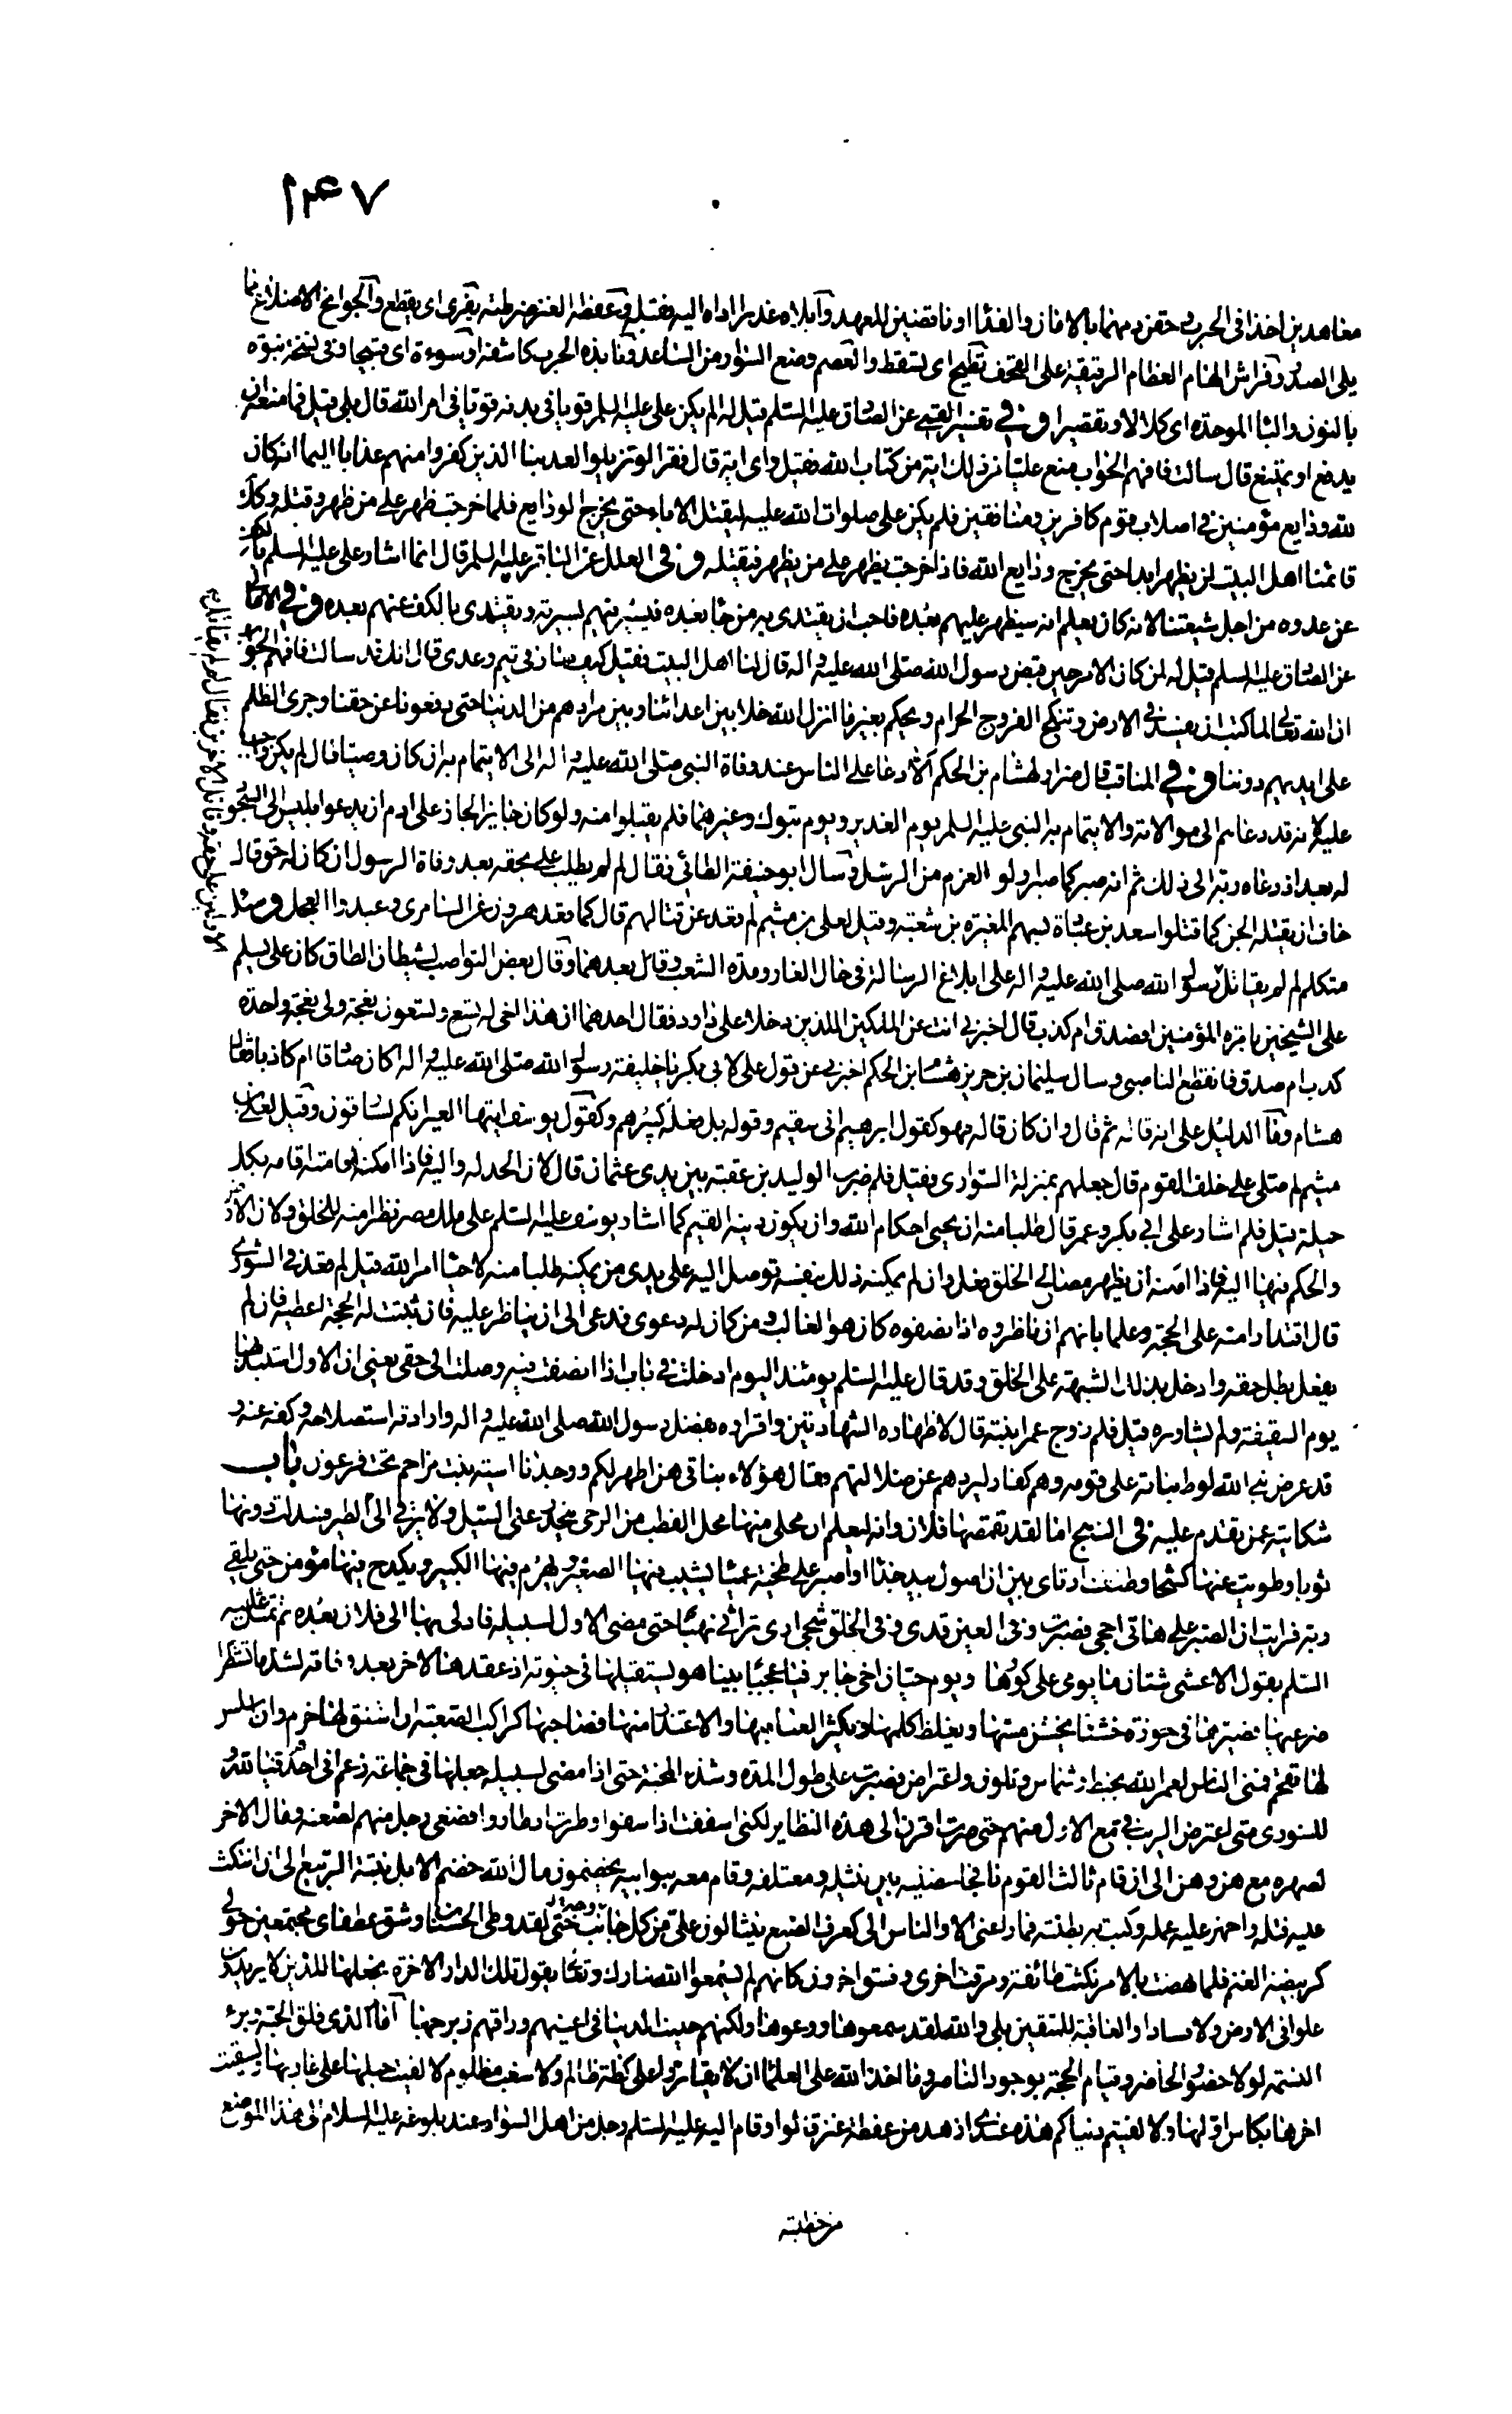 ١٢٤٧
معاهدين اخذا في الحرب حقن دمهما بالامان والفداء او ناقضين للعهد وآبلاه عذرا اداه اليه فقبل وعفطة العنز ضرطته يفرى اى يقطع والجوانح الاضلاع مما
يلى الصدر وفراش الهام العظام الرقيقة على القحف تطيح اى تسقط والمعصم وضع السوار من الساعد ونابذه الحرب كاشفه او سوءة اى قبيحا وفى نسخة نبوة
بالنون والباء الموحدة اى كلالا وتقصيرا وفي تفسير القمي عن الصادق عليه السلم قيل له الم يكن على عليه السلم قويا في بدنه قويا في امر الله قال بلى قيل فما منعه ان
يدفع او يمتنع قال سالت فافهم الجواب منع عليا من ذلك اية من كتاب الله فقيل واى اية قال فقرأ لو تزيلوا لعذبنا الذين كفروا منهم عذابا اليما انه كان
لله ودايع مؤمنين في اصلاب قوم كافرين ومنافقين فلم يكن على صلوات الله عليه ليقتل الاباء حتى يخرج الودايع فلما خرجت ظهر على من ظهر وقتله وكذلك
قائمنا اهل البيت لن يظهر ابدا حتى يخرج ودايع الله فاذا خرجت يظهر على من يظهر فيقتله وفي العلل عن الباقر عليه السلم قال انما اشار على عليه السلم بالكف
عن عدوه من اجل شيعتنا لانه كان يعلم انه سيظهر عليهم بعده فاحب ان يقتدى به من جاء بعده فيسير فيهم بسيرته ويقتدى بالكف عنهم بعده وفي الامالي
عن الصادق عليه السلم قيل له لمن كان الامر حين قبض رسول الله صلى الله عليه واله قال لنا اهل البيت فقيل كيف صار في تيم وعدى قال انك قد سالت فافهم الجواب
ان الله تعالى لما كتب ان يفسد في الارض وتنكح الفروج الحرام ويحكم بغير ما انزل الله خلا بين اعدائنا وبين مرادهم من الدنيا حتى دفعونا عن حقنا وجرى الظلم
على ايديهم دوننا وفي المناقب قال ضرار لهشام بن الحكم الا دعا على الناس عند وفاة النبي صلى الله عليه واله الى الايتمام به ان كان وصيا قال لم يكن واجبا
عليه لانه قد دعاهم الى موالاته والايتمام به النبي عليه السلم يوم الغدير ويوم تبوك وغيرهما فلم يقبلوا منه ولو كان جايزا لجاز على ادم ان يدعو ابليس الى السجود
له بعد اذ دعاه ربه الى ذلك ثم انه صبر كما صبر اولو العزم من الرسل وسال ابو حنيفة الطاقي فقال لم لم يطلب على بحقه بعد وفاة الرسول ان كان له حق قال
خاف ان يقتله الجن كما قتلوا سعد بن عبادة بسهم المغيرة بن شعبة وقيل لعلى بن ميثم لم قعد عن قتالهم قال كما قعد هرون عن السامرى وعبدوا العجل وسئل
متكلم لم لم يقاتل رسول الله صلى الله عليه واله على ابلاغ الرسالة في حال الغار ومدة الشعب وقاتل بعدهما وقال بعض النواصب لشيطان الطاق كان على يسلم
على الشيخين بامرة المؤمنين افصدق ام كذب قال اخبرني انت عن الملكين اللذين دخلا على داود فقال احدهما ان هذا اخى له تسع وتسعون نعجة ولى نعجة واحدة
كذب ام صدق فانقطع الناصبى وسال سليمان بن جرير هشام ابن الحكم اخبرني عن قول على لابي بكر يا خليفة رسول الله صلى الله عليه واله اكان صادقا ام كاذبا فقال
هشام وما الدليل على انه قاله ثم قال وان كان قاله فهو كقول ابرهيم انى سقيم وقوله بل فعله كبيرهم وكقول يوسف ايتها العير انكم لسارقون وقيل لعلى بن
ميثم لم صلى على خلف القوم قال جعلهم بمنزلة السوارى فقيل فلم ضرب الوليد بن عقبة بين يدى عثمان قال لان الحد له واليه فاذا امكنه اقامته اقامه بكل
حيلة قيل فلم اشار على ابي بكر وعمر قال طلبا منه ان يحيى احكام الله وان يكون دينه القيم كما اشار يوسف عليه السلم على ملك مصر نظرا منه للخلق ولان الارض
والحكم فيها اليه فاذا امكنه ان يظهر مصالح الخلق فعل وان لم يمكنه ذلك بنفسه توصل اليه على يدى من يمكنه طلبا منه لاحياء امر الله قيل لم قعد في الشورى
قال اقتدارا منه على الحجة وعلما بانهم ان ناظروه او انصفوه كان هو الغالب ومن كان له دعوى فدعى الى ان يناظر عليه فان ثبتت له الحجة اعطيه فان لم
يفعل بطل حقه وادخل بذلك الشبهة على الخلق وقد قال عليه السلم يومئذ اليوم ادخلت في باب اذا انصفت فيه وصلت الى حقى يعنى ان الاول استبد بها
يوم السقيفة ولم يشاوره قيل فلم زوج عمر ابنته قال لاظهاره الشهادتين واقراره بفضل رسول الله صلى الله عليه واله وارادته استصلاحه وكفه عنه و
قد عرض نبي الله لوط بناته على قومه وهم كفار ليردهم عن ضلالتهم فقال هؤلاء بناتى هن اطهر لكم ووجدنا اسية بنت مزاحم تحت فرعون باب
شكايته عمن تقدم عليه في النهج اما لقد تقمصها فلان وانه ليعلم ان محلى منها محل القطب من الرحى ينحدر عنى السيل ولا يرقى الى الطير فسدلت دونها
ثوبا وطويت عنها كشحا وطفقت ارتاى بين ان اصول بيد جذاء او اصبر على طخية عمياء يشيب فيها الصغير ويهرم فيها الكبير ويكدح فيها مؤمن حتى يلقى
ربه فرايت ان الصبر على هاتى احجى فصبرت وفى العين قذى وفى الحلق شجى ارى تراثى نهبا حتى مضى الاول لسبيله فادلى بها الى فلان بعده ثم تمثل عليه
السلم بقول الاعشى شتان ما يومى على كورها ويوم حيان اخى جابر فيا عجبا بينا هو يستقيلها فى حيوته اذ عقدها لاخر بعد وفاته لشد ما تشطرا
ضرعيها فصيرها فى حوزة خشناء يخشن مسها ويغلظ كلمها ويكثر العثار فيها والاعتذار منها فصاحبها كراكب الصعبة ان اشنق لها خرم وان اسلس
لها تقحم فمنى الناس لعمر الله بخبط وشماس وتلون واعتراض فصبرت على طول المدة وشدة المحنة حتى اذا مضى لسبيله جعلها في جماعة زعم انى احدهم فيا لله و
للشورى متى اعترض الريب في مع الاول منهم حتى صرت اقرن الى هذه النظاير لكنى اسففت اذ اسفوا وطرت اذ طاروا فصغى رجل منهم لضغنه ومال الاخر
لصهره مع هن وهن الى ان قام ثالث القوم نافجا حضنيه بين نثيله ومعتلفه وقام معه بنو ابيه يخضمون مال الله خضم الابل نبتة الربيع الى ان انتكث
عليه فتله واجهز عليه عمله وكبت به بطنته فما راعنى الا والناس الى كعرف الضبع ينثالون على من كل جانب حتى لقد وطى الحسنان وشق عطفاى مجتمعين حولى
كربيضة الغنم فلما نهضت بالامر نكثت طائفة ومرقت اخرى وفسق اخرون كانهم لم يسمعوا الله تبارك وتعالى يقول تلك الدار الاخرة نجعلها للذين لا يريدون
علوا في الارض ولا فسادا والعاقبة للمتقين بلى والله لقد سمعوها ووعوها ولكنهم حليت الدنيا في اعينهم وراقهم زبرجها اما والذى فلق الحبة وبرء
النسمة لولا حضور الحاضر وقيام الحجة بوجود الناصر وما اخذ الله على العلماء ان لا يقاروا على كظة ظالم ولا سغب مظلوم لالقيت حبلها على غاربها ولسقيت
اخرها بكاس اولها ولالفيتم دنياكم هذه عندى ازهد من عفطة عنز قالوا وقام اليه عليه السلم رجل من اهل السواد عند بلوغه عليه السلام الى هذا الموضع
من خطبته